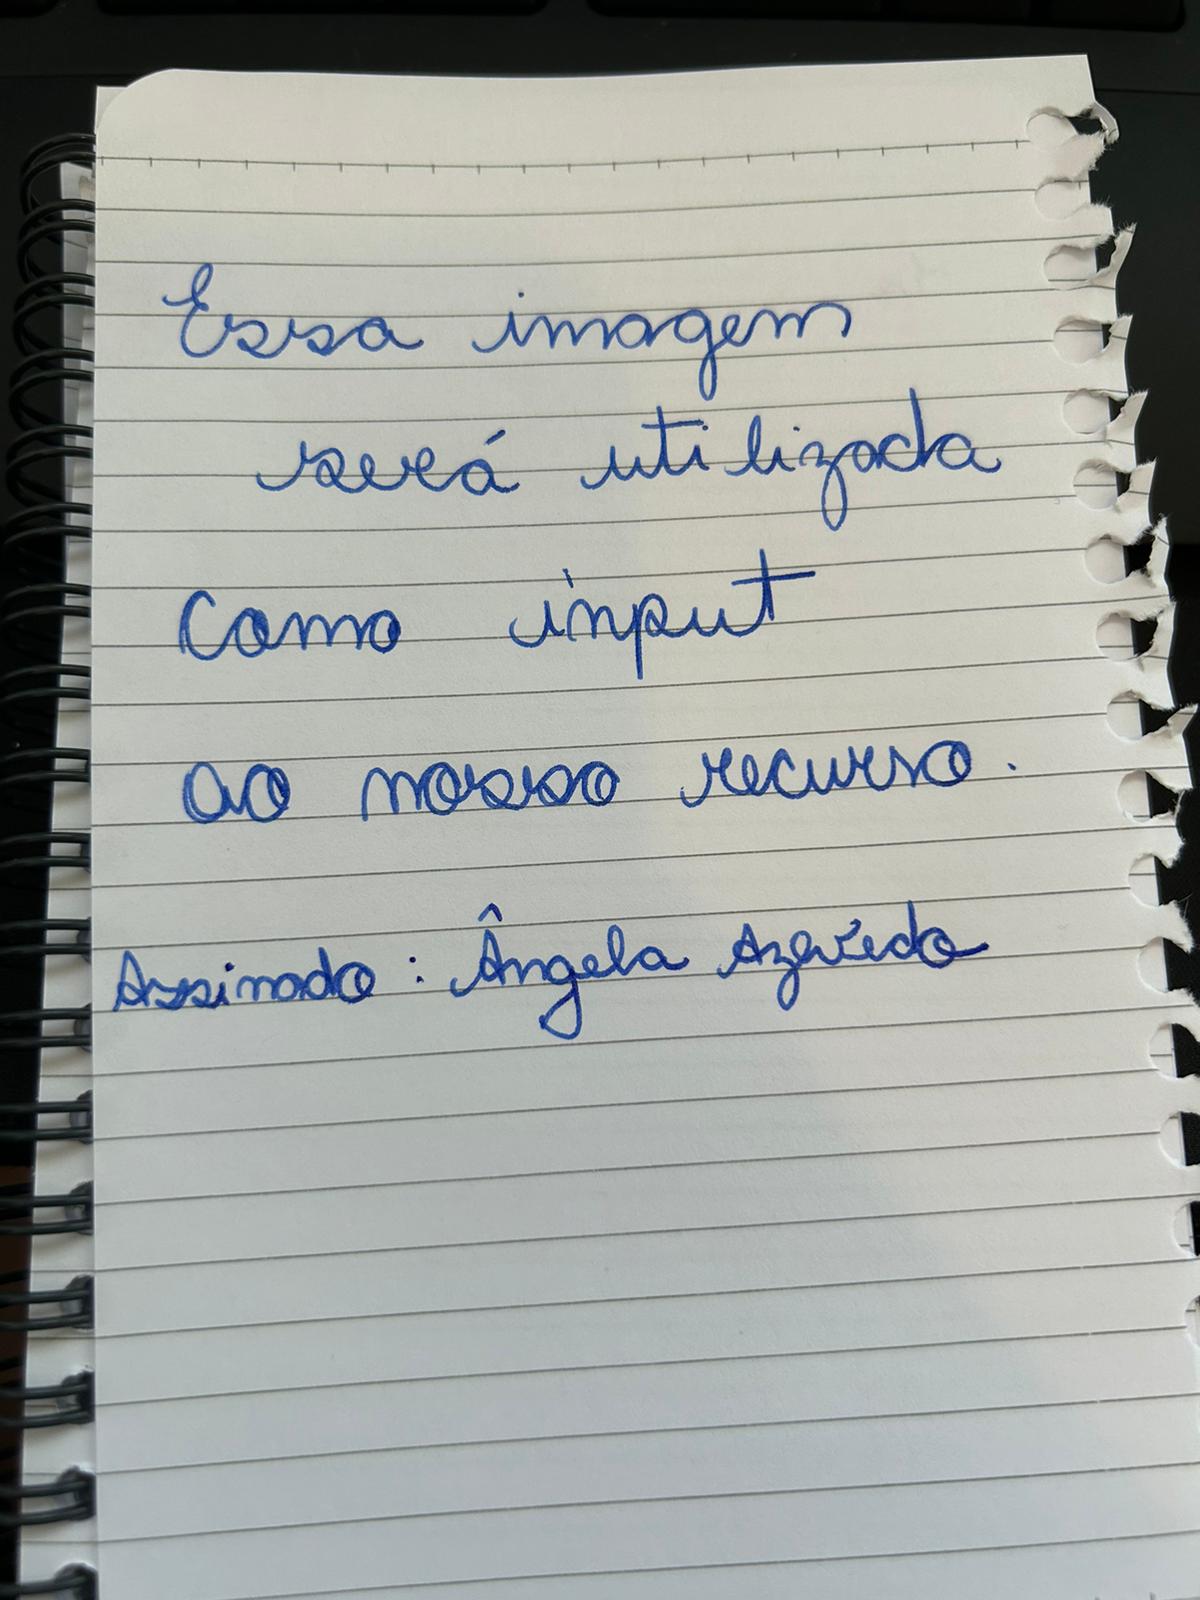 Essa imagem
será utilizada
como input
ao nosso recurso.
Assinado: Ângela Azevedo